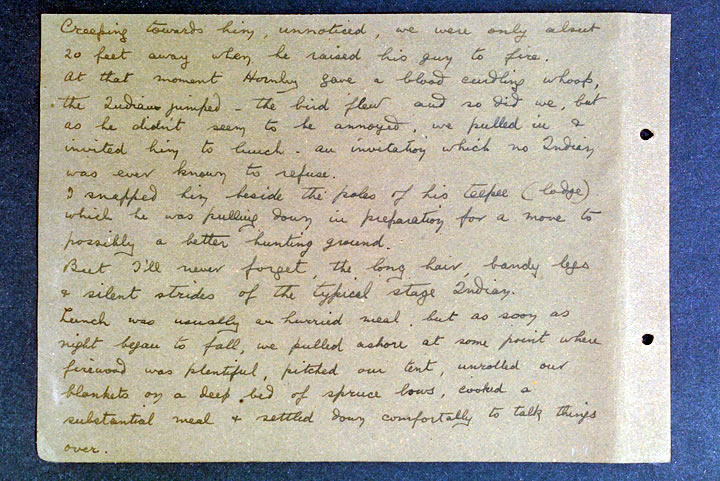 Creeping towards him, unnoticed, we were only about
20 feet away when he raised his gun to fire.
At that moment Hornby gave a blood curdling whoop,
the Indian jumped - the bird flew and so did we, but
as he didn't seem to be annoyed, we pulled in &
invited him to lunch - an invitation which no Indian
was ever known to refuse.
I snapped him beside the poles of his teepee (lodge)
which he was pulling down in preparation for a move to
possibly a better hunting ground.
But I'll never forget, the long hair, bandy legs
& silent strides of the typical stage Indian.
Lunch was usually an hurried meal. but as soon as
night began to fall, we pulled ashore at some point where
firewood was plentiful, pitched our tent, unrolled our
blankets on a deep bed of spruce bows, cooked a
substantial meal & settled down comfortably to talk things
over.